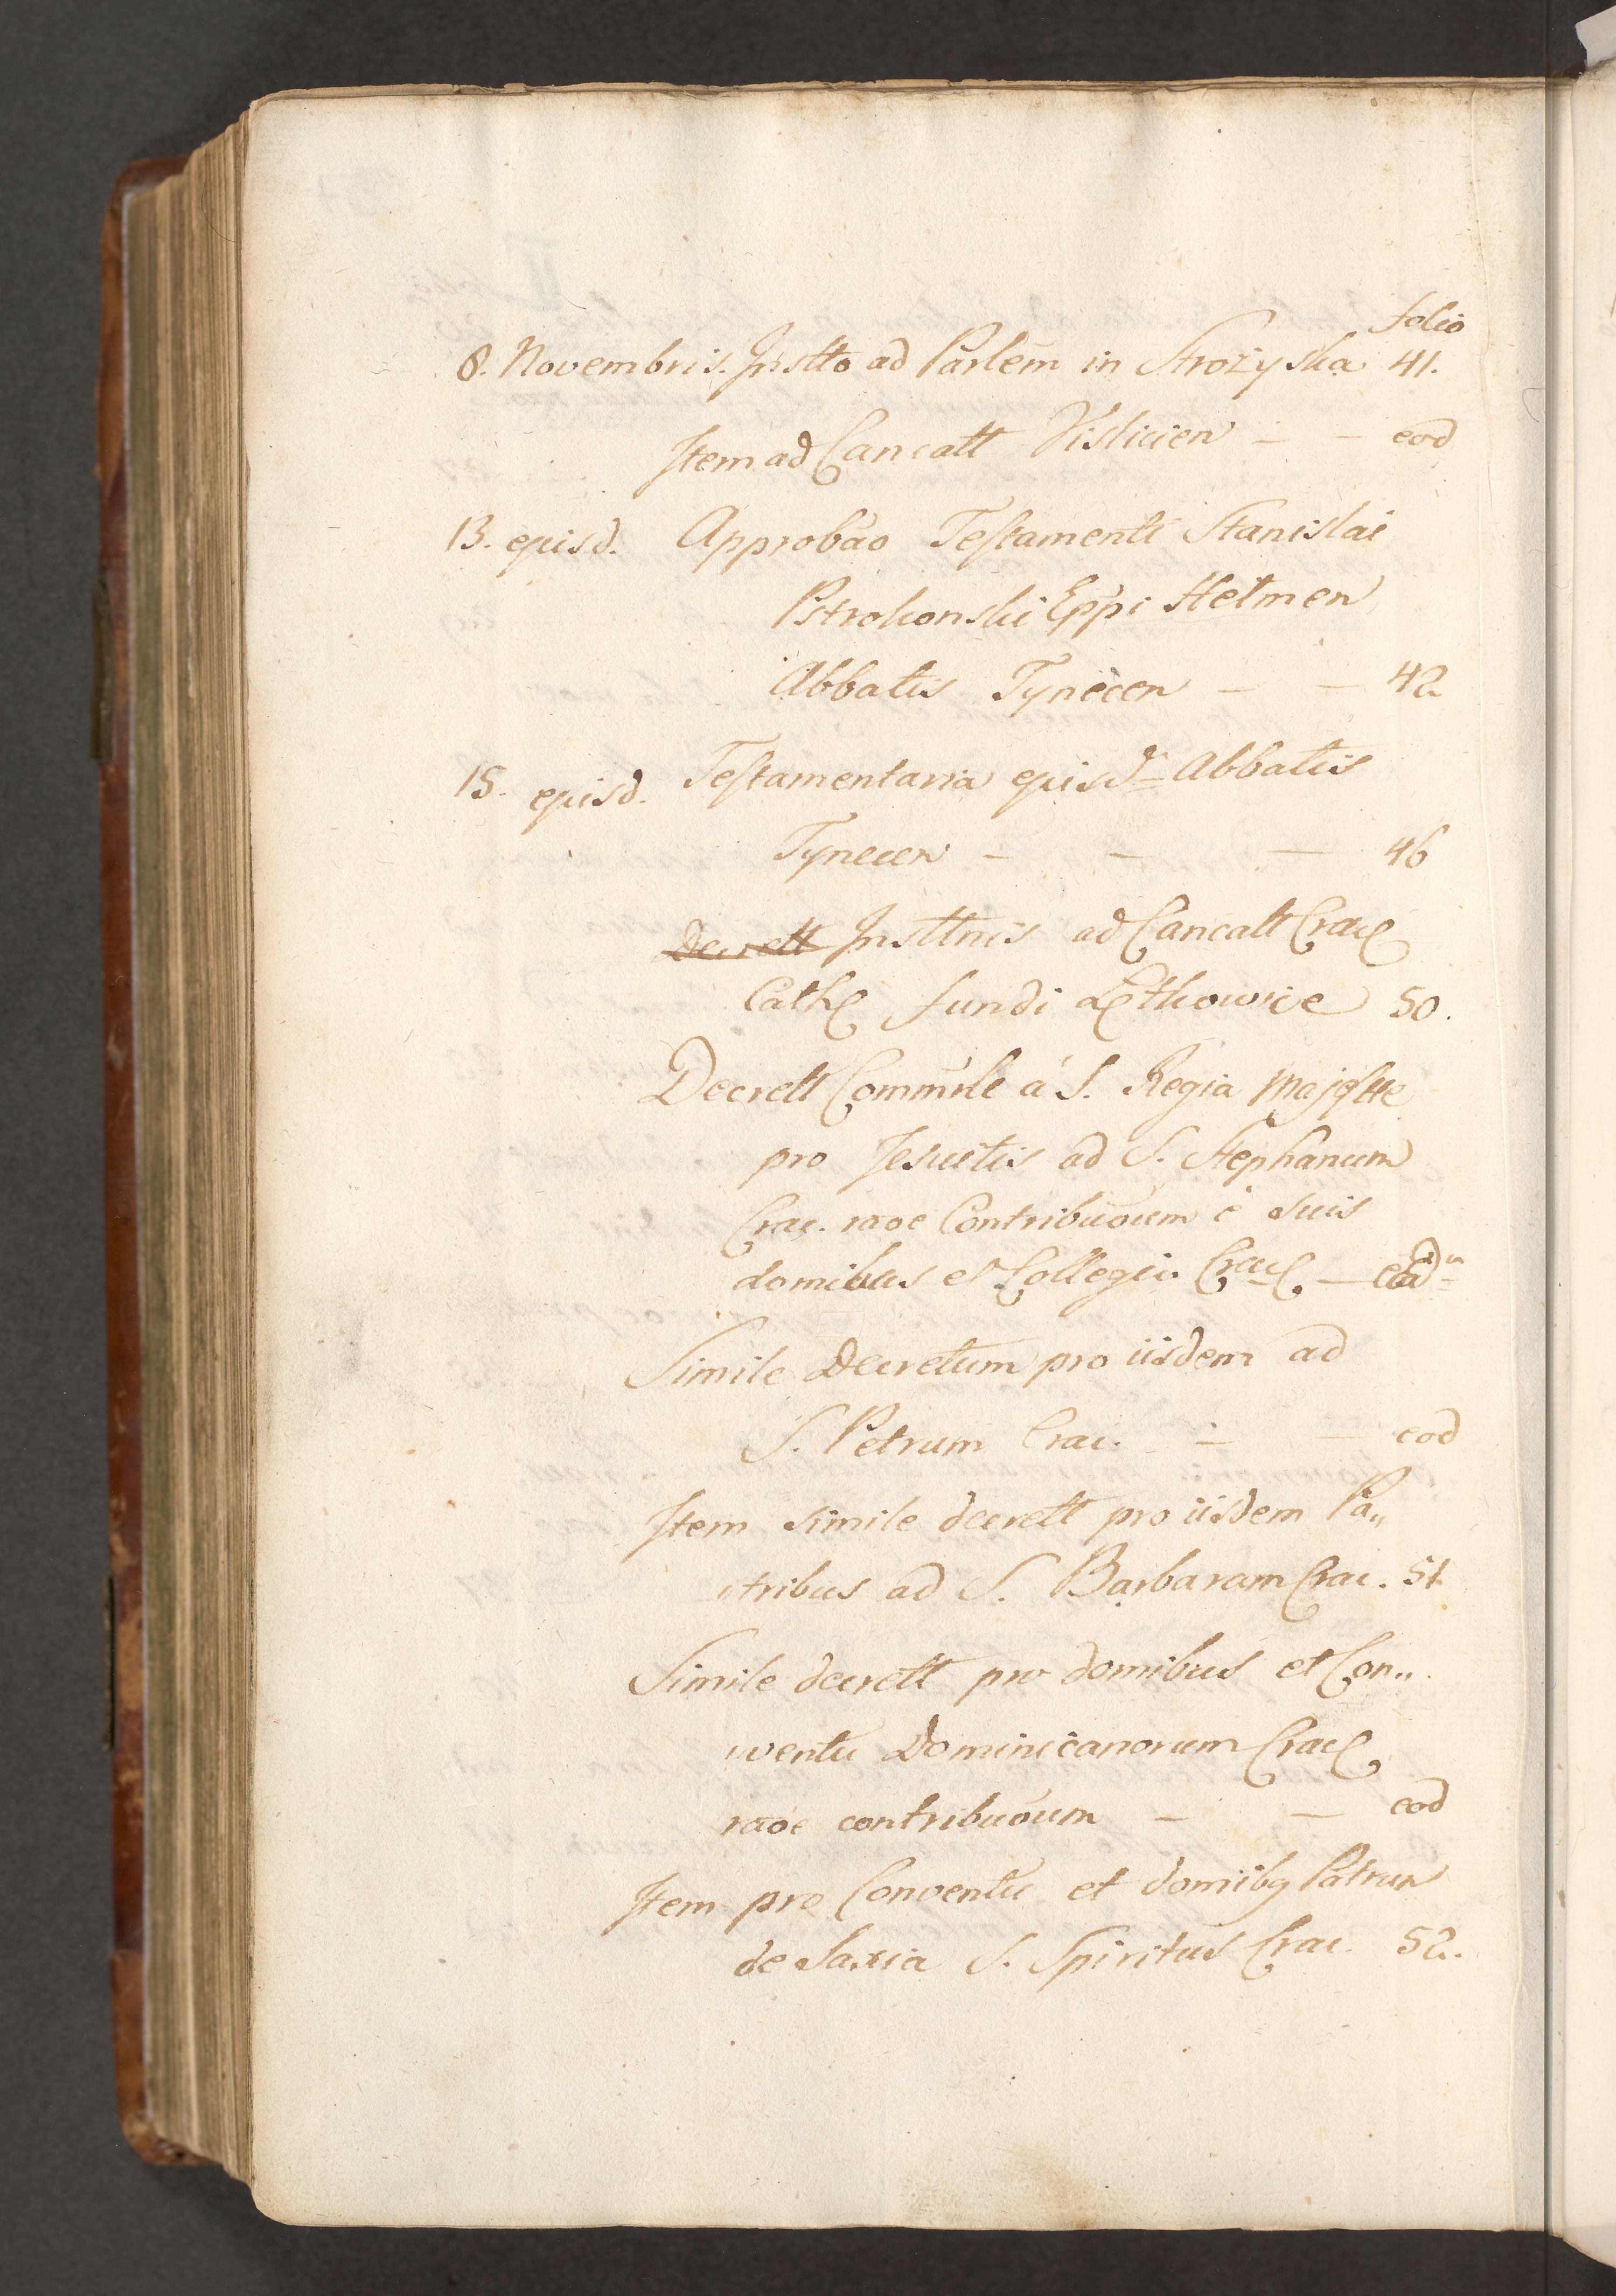 folio
8. Novembris. Instto ad Parlem in Strozyska 41.
Item ad Cancatt Vislicien – – eod
13. ejusd. Approbao Testamenti Stanislai
Pstrokonski Eppi Helmen
Abbatis Tynecen – – 42
15. ejusd. Testamentaria ejusd Abbatis
Tynecen – – – 46
Decrett Insttnis ad Cancatt Crac
Cath fundi Lethowice 50.
Decrett Commrle à S. Regia Majestte
pro Jesuitis ad S. Stephanum
Crac. raoe Contribuoum è suis
domibus et Collegio Crac – eod
Simile Decretum pro iisdem ad
S. Petrum Crac. – – eod
Item simile decrett pro iisdem Pa„
„tribus ad S. Barbaram Crac. 51
Simile decrett pro domibus et Con„
„ventu Dominicanorum Crac
raoe contribuoum – – eod
Item pro Conventu et domibq Patrum
de Saxia S. Spiritus Crac. 52.